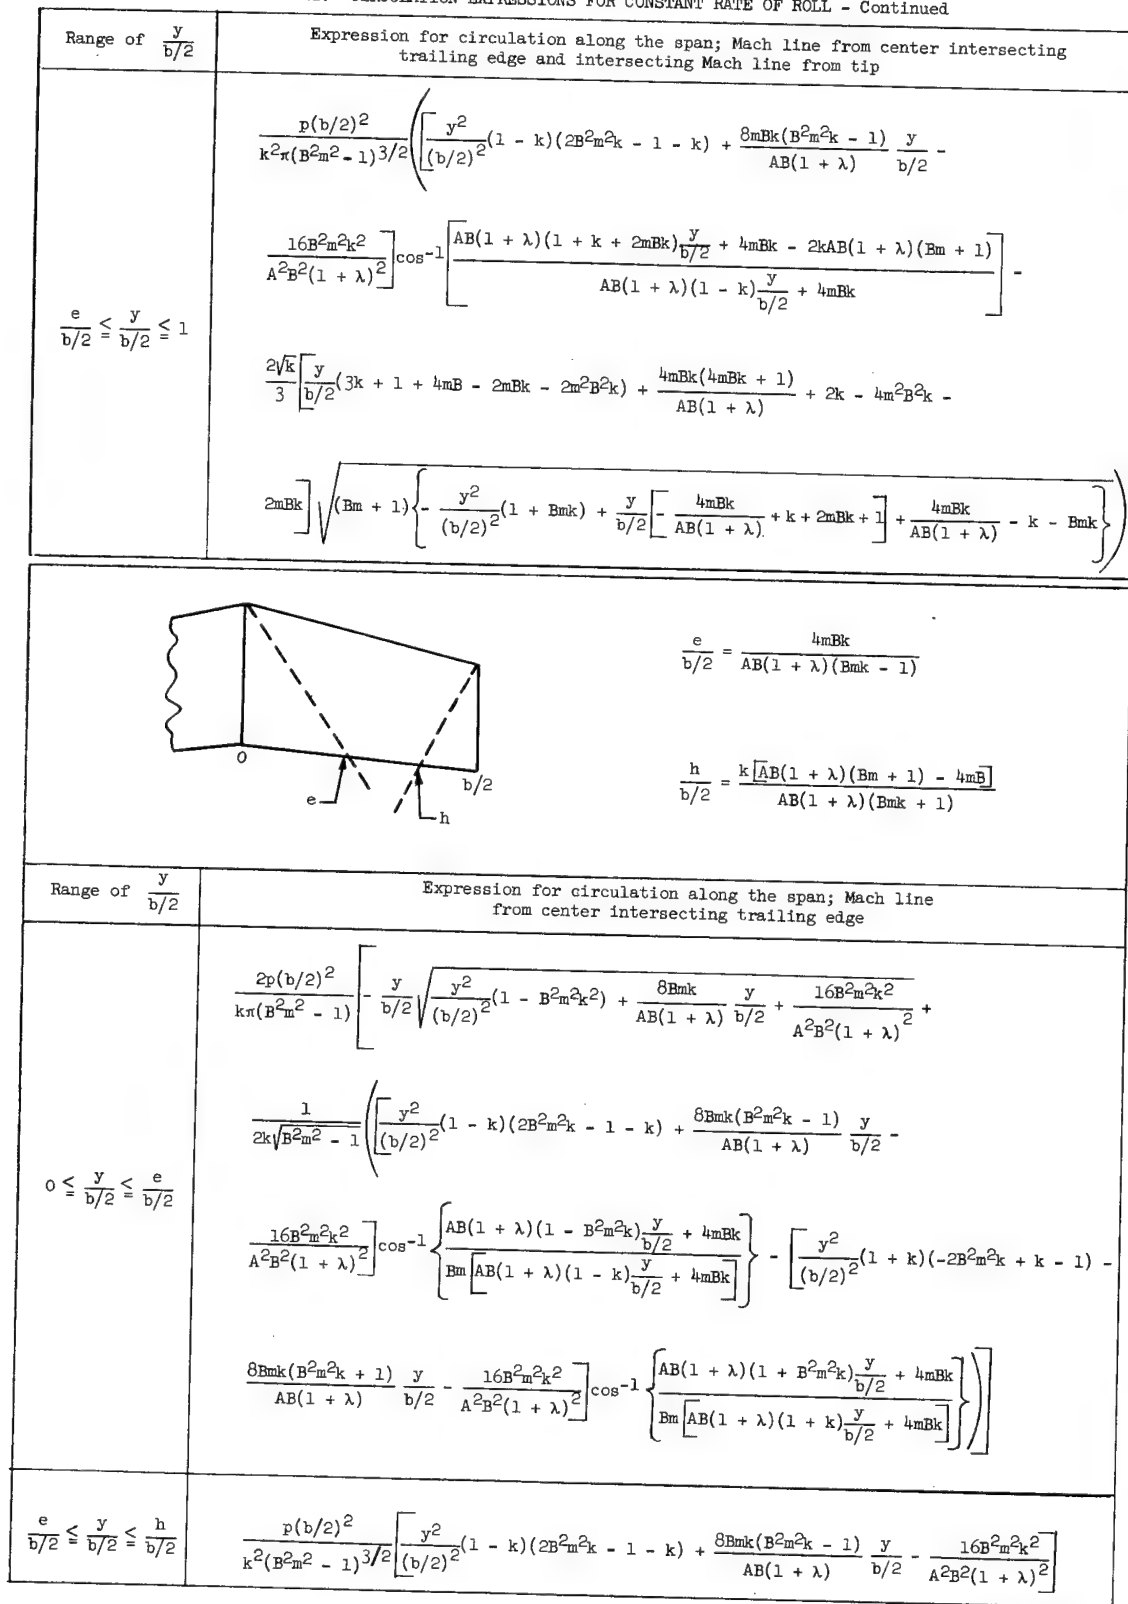 CIRCULATION EXPRESSIONS FOR CONSTANT RATE OF ROLL - Continued
Range of \frac{y}{b/2}
Expression for circulation along the span; Mach line from center intersecting
trailing edge and intersecting Mach line from tip
\frac{e}{b/2} ≦ \frac{y}{b/2} ≦ 1
\frac{p(b/2)^2}{k^2π(B^2m^2 - 1)^{3/2}} ( [ \frac{y^2}{(b/2)^2}(1 - k)(2B^2m^2k - 1 - k) + \frac{8mBk(B^2m^2k - 1)}{AB(1 + λ)} \frac{y}{b/2} -
\frac{16B^2m^2k^2}{A^2B^2(1 + λ)^2} ] cos^{-1} [ \frac{AB(1 + λ)(1 + k + 2mBk)\frac{y}{b/2} + 4mBk - 2kAB(1 + λ)(Bm + 1)}{AB(1 + λ)(1 - k)\frac{y}{b/2} + 4mBk} ] -
\frac{2\sqrt{k}}{3} [ \frac{y}{b/2}(3k + 1 + 4mB - 2mBk - 2m^2B^2k) + \frac{4mBk(4mBk + 1)}{AB(1 + λ)} + 2k - 4m^2B^2k -
2mBk ] \sqrt{(Bm + 1) { - \frac{y^2}{(b/2)^2}(1 + Bmk) + \frac{y}{b/2} [ - \frac{4mBk}{AB(1 + λ)} + k + 2mBk + 1 ] + \frac{4mBk}{AB(1 + λ)} - k - Bmk } } )
\frac{e}{b/2} = \frac{4mBk}{AB(1 + λ)(Bmk - 1)}
\frac{h}{b/2} = \frac{k[AB(1 + λ)(Bm + 1) - 4mB]}{AB(1 + λ)(Bmk + 1)}
0
b/2
e
h
Range of \frac{y}{b/2}
Expression for circulation along the span; Mach line
from center intersecting trailing edge
0 ≦ \frac{y}{b/2} ≦ \frac{e}{b/2}
\frac{2p(b/2)^2}{kπ(B^2m^2 - 1)} [ - \frac{y}{b/2} \sqrt{\frac{y^2}{(b/2)^2}(1 - B^2m^2k^2) + \frac{8Bmk}{AB(1 + λ)} \frac{y}{b/2} + \frac{16B^2m^2k^2}{A^2B^2(1 + λ)^2}} +
\frac{1}{2k\sqrt{B^2m^2 - 1}} ( [ \frac{y^2}{(b/2)^2}(1 - k)(2B^2m^2k - 1 - k) + \frac{8Bmk(B^2m^2k - 1)}{AB(1 + λ)} \frac{y}{b/2} -
\frac{16B^2m^2k^2}{A^2B^2(1 + λ)^2} ] cos^{-1} { \frac{AB(1 + λ)(1 - B^2m^2k)\frac{y}{b/2} + 4mBk}{Bm [ AB(1 + λ)(1 - k)\frac{y}{b/2} + 4mBk ]} } - [ \frac{y^2}{(b/2)^2}(1 + k)(-2B^2m^2k + k - 1) -
\frac{8Bmk(B^2m^2k + 1)}{AB(1 + λ)} \frac{y}{b/2} - \frac{16B^2m^2k^2}{A^2B^2(1 + λ)^2} ] cos^{-1} { \frac{AB(1 + λ)(1 + B^2m^2k)\frac{y}{b/2} + 4mBk}{Bm [ AB(1 + λ)(1 + k)\frac{y}{b/2} + 4mBk ]} } ) ]
\frac{e}{b/2} ≦ \frac{y}{b/2} ≦ \frac{h}{b/2}
\frac{p(b/2)^2}{k^2(B^2m^2 - 1)^{3/2}} [ \frac{y^2}{(b/2)^2}(1 - k)(2B^2m^2k - 1 - k) + \frac{8Bmk(B^2m^2k - 1)}{AB(1 + λ)} \frac{y}{b/2} - \frac{16B^2m^2k^2}{A^2B^2(1 + λ)^2} ]